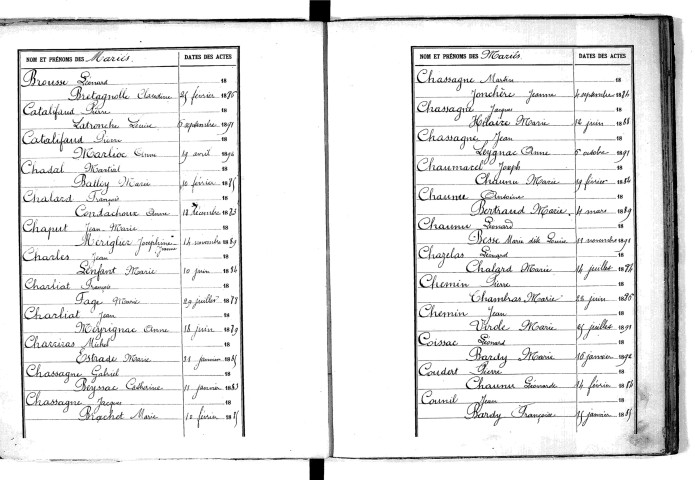 NOM ET PRÉNOMS DES Mariés. DATES DES ACTES
Brousse Léonard 18
Bretagnolle Claudine 25 février 1875
Catalifaud Pierre 18
Latronche Louise 6 septembre 1891
Catalifaud Pierre 18
Marlioc Anne 19 avril 18
Chadal Martial 18
Balley Marie 10 février 1875
Chalard François 18
Condachoux Anne 18 décembre 1873
Chaput Jean Marie 18
Mériglier Joséphine Jeanne 14 novembre 1889
Charles Jean 18
Lenfant Marie 10 juin 18
Charliat François 18
Fage Marie 29 juillet 1877
Charliat Jean 18
Meyrignac Anne 18 juin 1879
Charriras Michel 18
Estrade Marie 31 janvier 1885
Chassagne Gabriel 18
Beyssac Catherine 11 janvier 1883
Chassagne Jacques 18
Brachet Marie 10 février 1885
NOM ET PRÉNOMS DES Mariés. DATES DES ACTES
Chassagne Martin 18
Jonchère Jeanne 4 septembre 18
Chassagne Jacques 18
Hilaire Marie 16 juin 1888
Chassagne Jean 18
Leygnac Anne 5 octobre 1891
Chaumacel Joseph 18
Chaunu Marie 19 février 18
Chaunu Antoine 18
Bertrand Marie 4 mars 1889
Chaunu Léonard 18
Besse Marie dite Louise 11 novembre 1891
Chazelas Léonard 18
Chalard Marie 14 juillet 1874
Chemin Pierre 18
Chambras Marie 28 juin 18
Chemin Jean 18
Virole Marie 25 juillet 1891
Coissac Léonard 18
Bardy Marie 16 janvier 18
Coudert Pierre 18
Chaunu Léonarde 14 février 18
Counil Jean 18
Bardy Françoise 15 janvier 1885